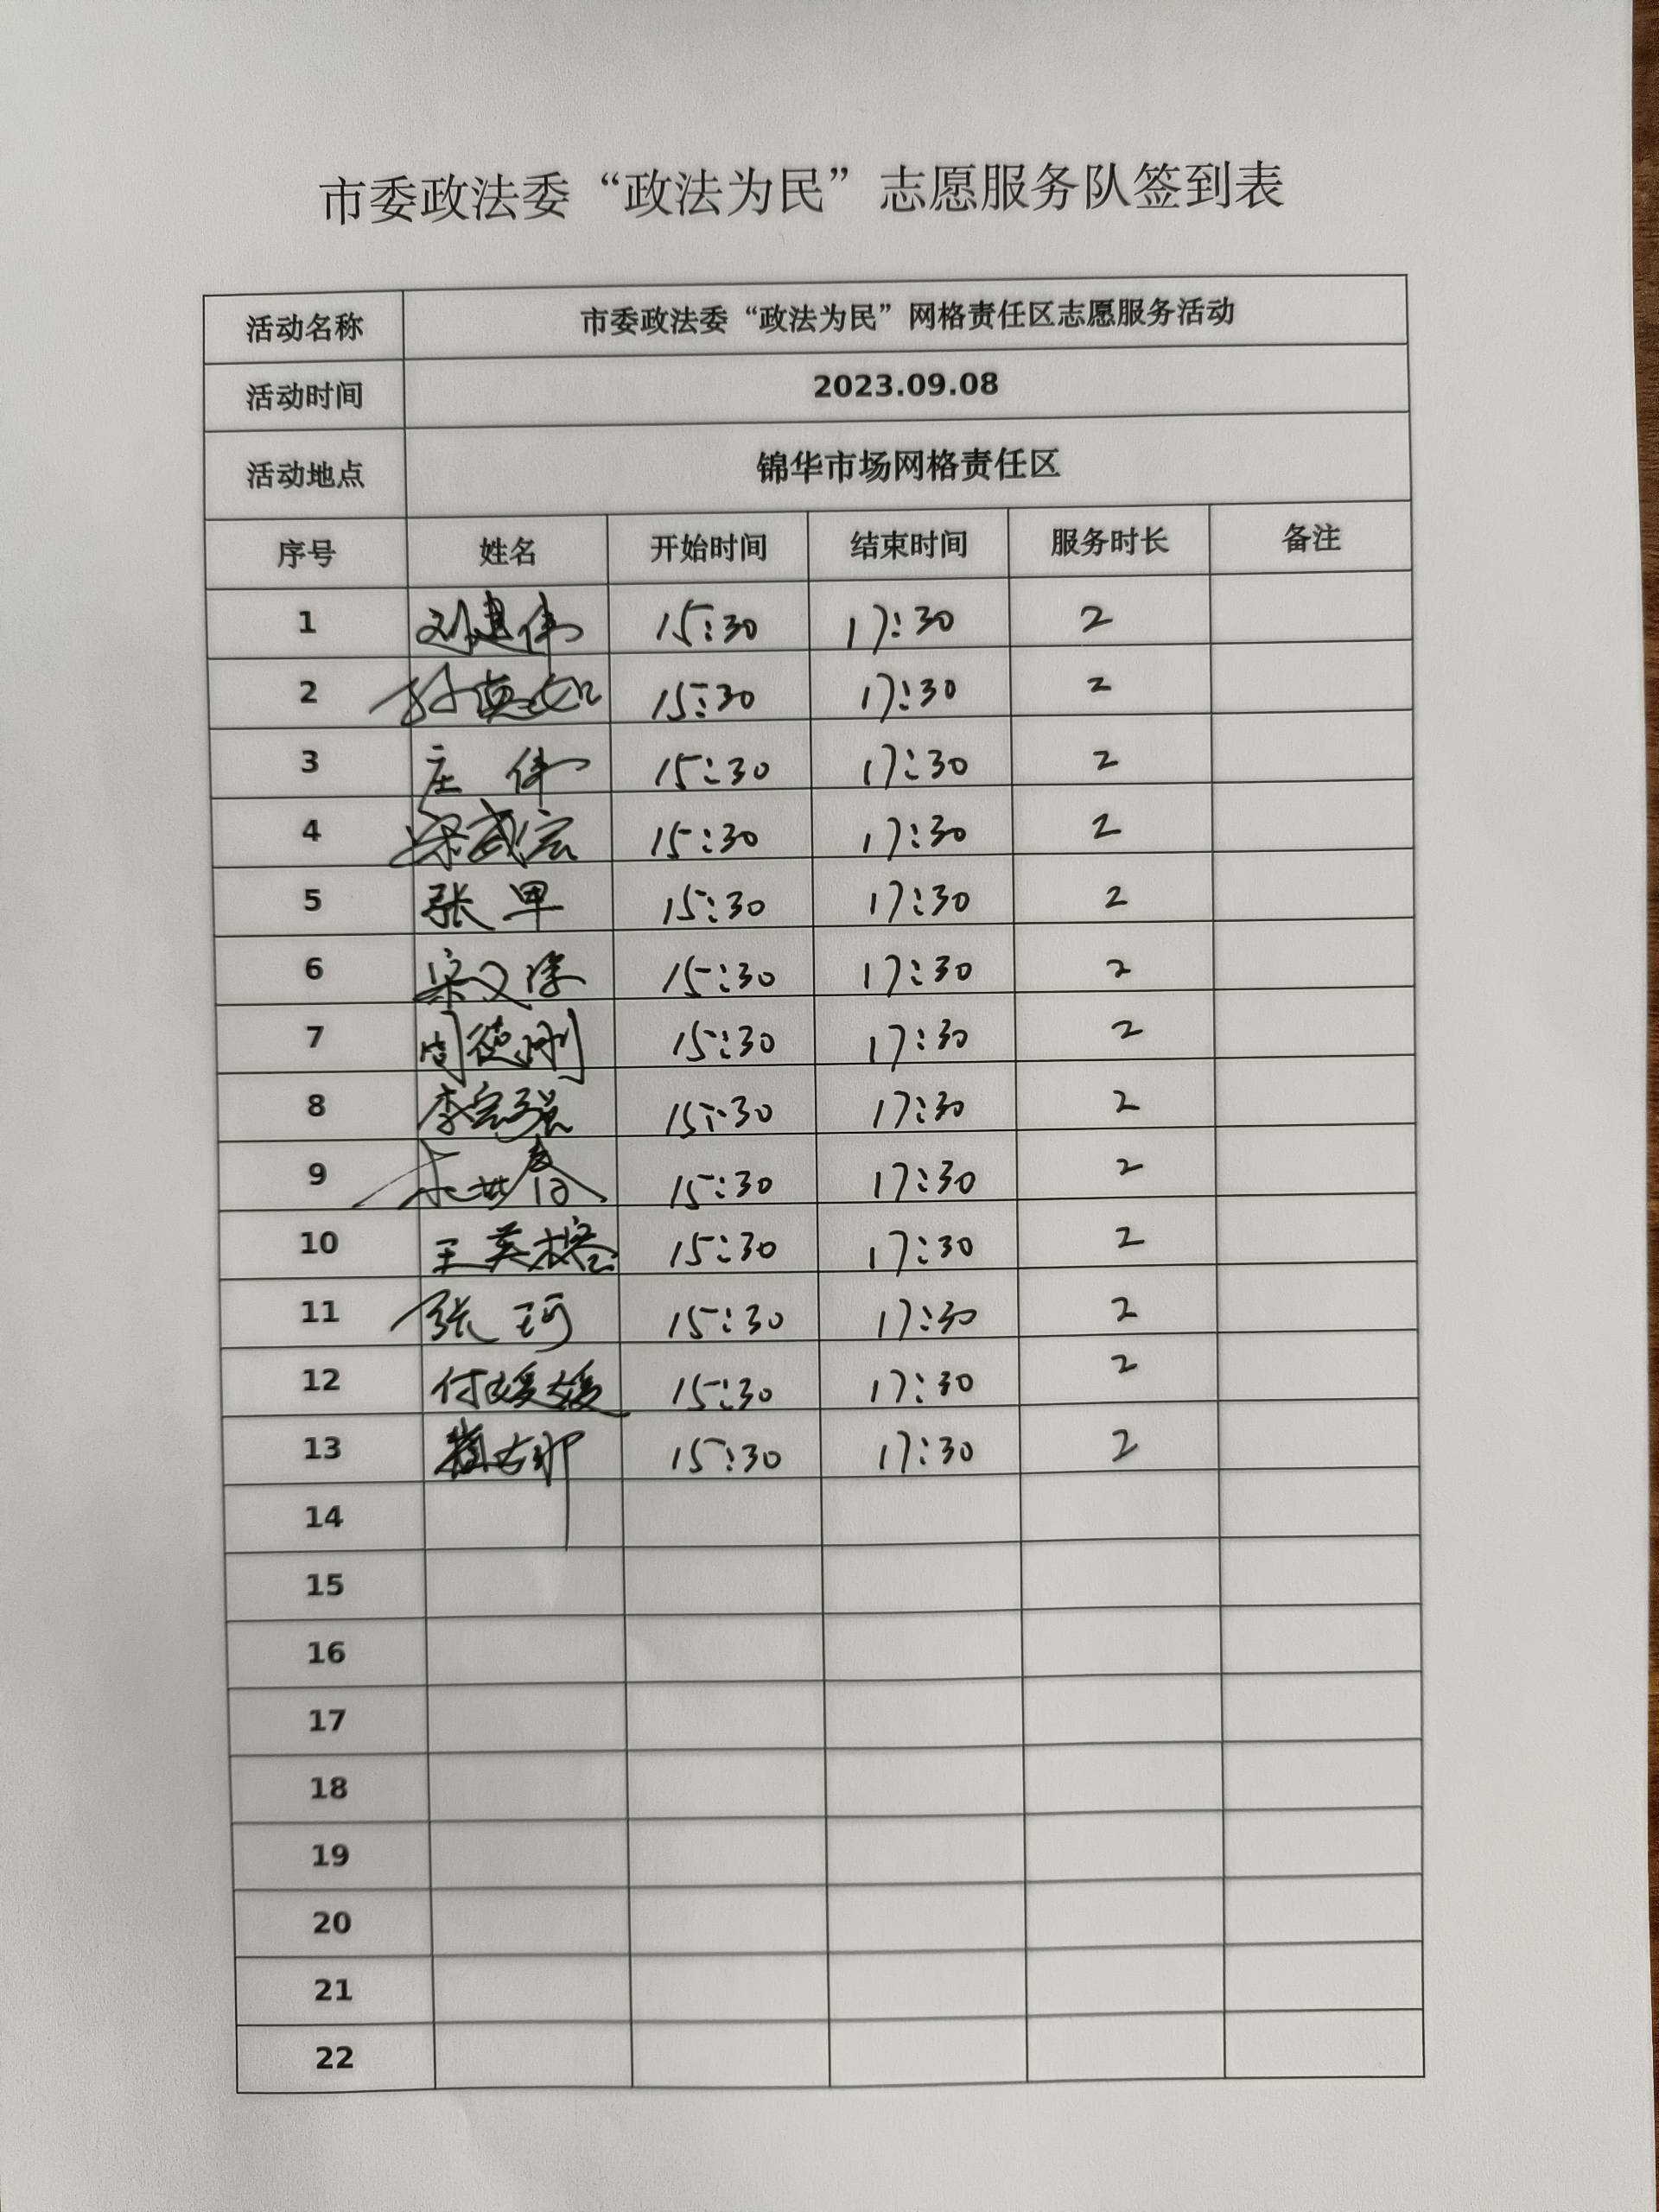 市委政法委“政法为民”志愿服务队签到表
活动名称 市委政法委“政法为民”网格责任区志愿服务活动
活动时间 2023.09.08
活动地点 锦华市场网格责任区
序号 姓名 开始时间 结束时间 服务时长 备注
1 刘建伟 15:30 17:30 2
2 15:30 17:30 2
3 庄伟 15:30 17:30 2
4 15:30 17:30 2
5 张甲 15:30 17:30 2
6 15:30 17:30 2
7 周德刚 15:30 17:30 2
8 李宗强 15:30 17:30 2
9 15:30 17:30 2
10 王英榕 15:30 17:30 2
11 张珂 15:30 17:30 2
12 付媛媛 15:30 17:30 2
13 15:30 17:30 2
14
15
16
17
18
19
20
21
22